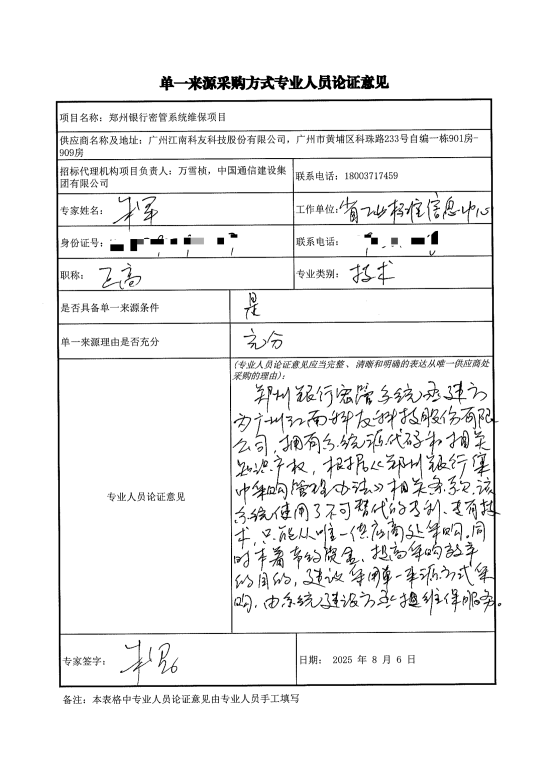 单一来源采购方式专业人员论证意见
项目名称：郑州银行密管系统维保项目
供应商名称及地址：广州江南科友科技股份有限公司，广州市黄埔区科珠路233号自编一栋901房-
909房
招标代理机构项目负责人：万雪桢，中国通信建设集
团有限公司
联系电话：18003717459
专家姓名：
工作单位：省工业标准信息中心
身份证号：
联系电话：
职称：正高
专业类别：技术
是否具备单一来源条件
是
单一来源理由是否充分
充分
（专业人员论证意见应当完整、清晰和明确的表达从唯一供应商处
采购的理由）：
专业人员论证意见
郑州银行密管系统承建方
为广州江南科友科技股份有限
公司，拥有系统源代码和相关
知识产权，根据《郑州银行集
中采购管理办法》相关条款，该
系统使用了不可替代的专利、专有技
术，只能从唯一供应商处采购。同
时本着节约资金、提高采购效率
的目的，建议采用单一来源方式采
购，由系统建设方提维保服务。
专家签字：
日期： 2025 年 8 月 6 日
备注：本表格中专业人员论证意见由专业人员手工填写